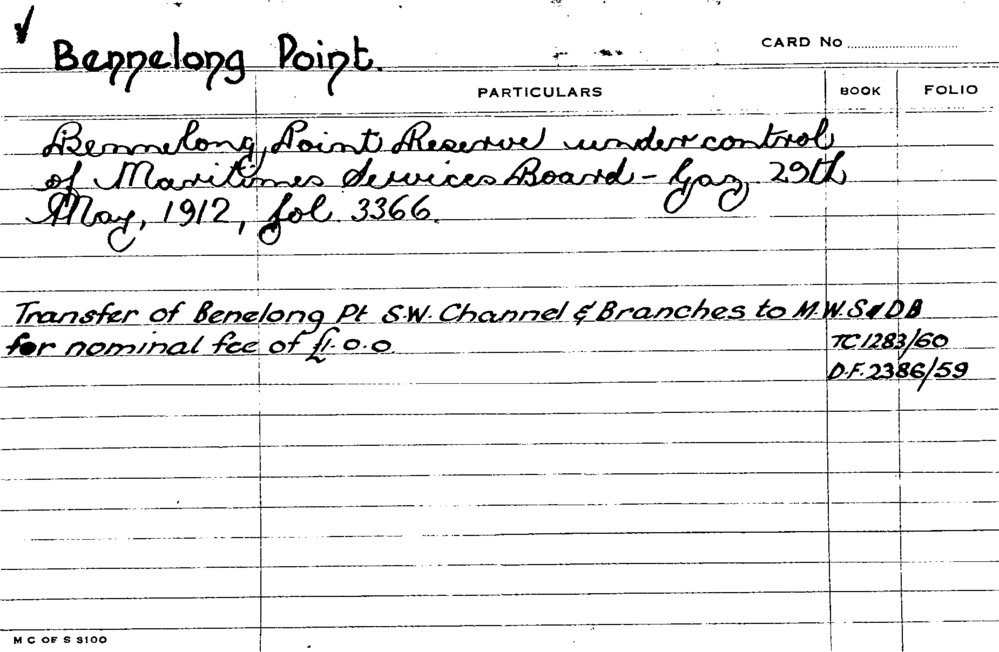 Bennelong Point.
CARD No
PARTICULARS BOOK FOLIO
Bennelong Point Reserve under control
of Maritimes Services Board - Gaz 29th
May, 1912, fol. 3366.
Transfer of Benelong Pt S.W. Channel & Branches to M.W.S & D B
for nominal fee of £1.0.0. TC1283/60
D.F. 2386/59
M C OF S 3100